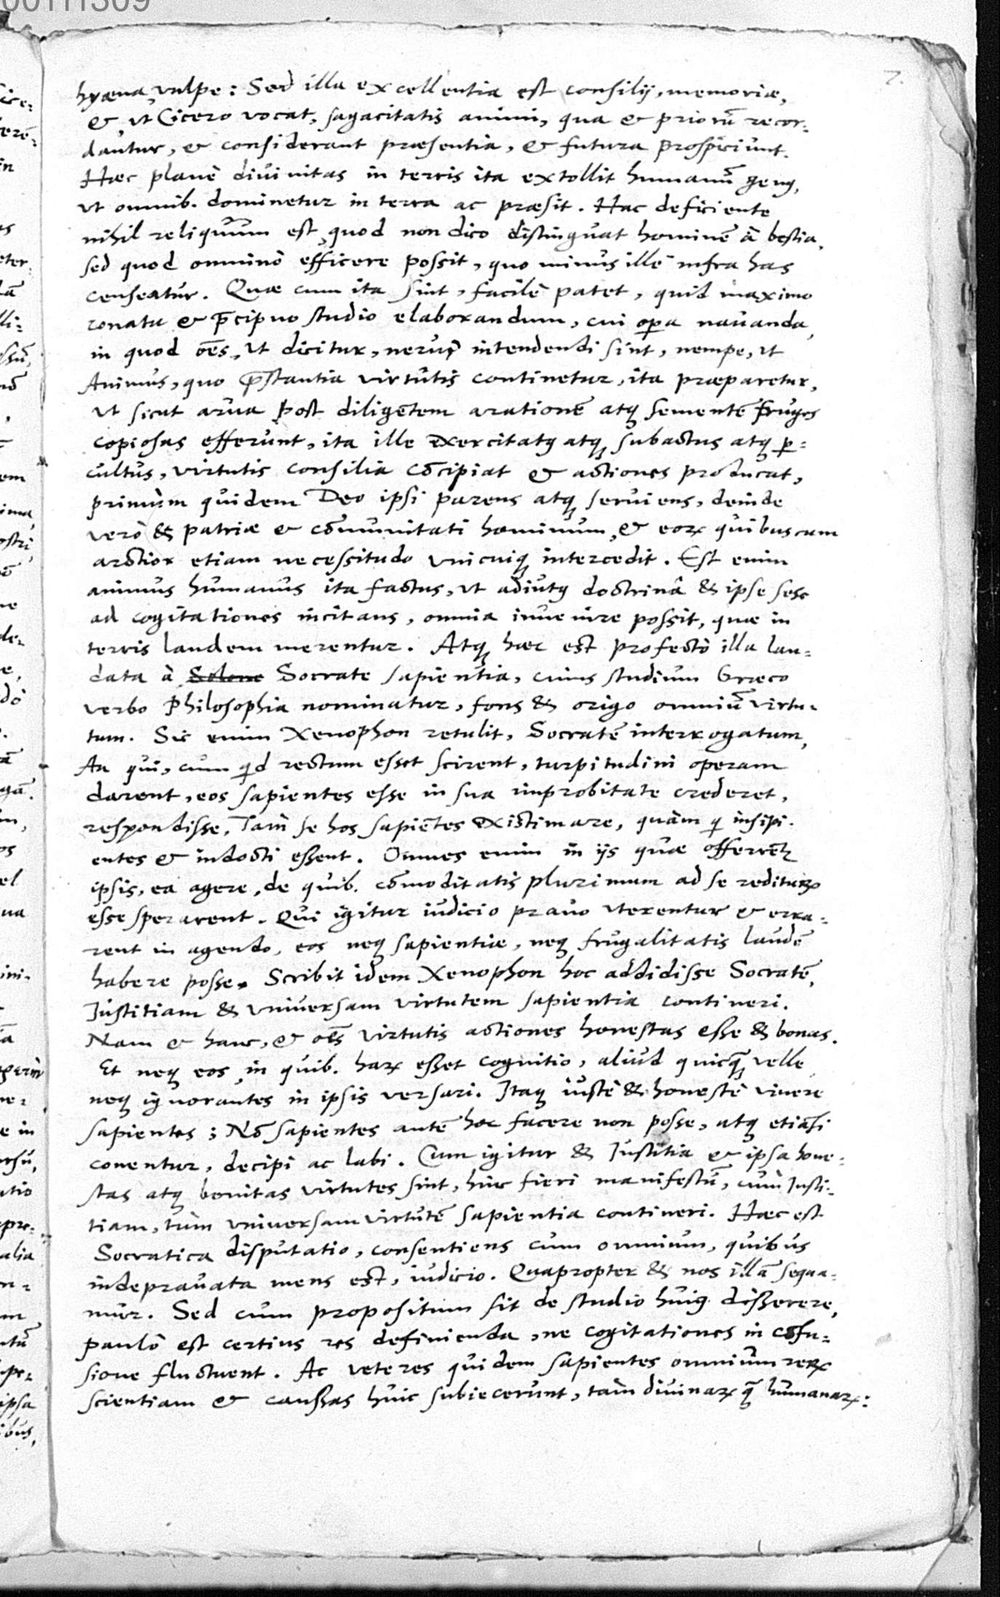 00111309
7.
hyæna, vulpe: Sed illa excellentia est consilij, memoriæ,
&, ut Cicero vocat, sagacitatis animi, qua & priorū recor-
dantur, & considerant præsentia, & futura prospiciunt.
Hæc planè divinitas in terris ita extollit humanū genꝰ,
ut omnib. dominetur in terra ac præsit. Hac deficiente
nihil reliquum est, quod non dico distinguat hominē à bestia,
sed quod omninò efficere possit, quo minus ille infra has
censeatur. Quæ cum ita sint, facilè patet, quid maximo
conatu & p̄cipuo studio elaborandum, cui opa navanda,
in quod oēs, ut dicitur, nerui intendendi sint, nempe, ut
Animus, quo p̄stantia virtutis continetur, ita præparetur,
ut sicut arua post diligētem arationē atqꝫ sementē fruges
copiosas efferunt, ita ille exercitatꝰ atqꝫ subactus atqꝫ ꝑ-
cultus, virtutis consilia cōcipiat & actiones producat,
primùm quidem Deo ipsi parens atqꝫ seruiens, deinde
verò & patriæ & cōmunitati hominum, & eorꝝ quibuscum
arctior etiam necessitudo unicuiqꝫ intercedit. Est enim
animus humanus ita factus, ut adiutꝰ doctrinâ & ipse sese
ad cogitationes incitans, omnia invenire possit, quæ in
terris laudem merentur. Atqꝫ hæc est profectò illa lau-
data à Solone Socrate sapientia, cuius studium Græco
verbo Philosophia nominatur, fons & origo omniū virtu-
tum. Sic enim Xenophon retulit, Socratē interrogatum,
An qui, cum qd rectum esset scirent, turpitudini operam
darent, eos sapientes esse in sua improbitate crederet,
respondisse, Tam se hos sapiētes existimare, quàm q insipi-
entes & indocti essent. Omnes enim in ijs quæ offerrent
ipsis, ea agere, de quib. cōmoditatis plurimum ad se rediturꝝ
esse sperarent. Qui igitur iudicio prauo uterentur & erra-
rent in agendo, eos neqꝫ sapientiæ, neqꝫ frugalitatis laudē
habere posse. Scribit idem Xenophon hoc addidisse Socratē,
Iustitiam & universam virtutem sapientia contineri.
Nam & hanc, & oēs virtutis actiones honestas esse & bonas.
Et neqꝫ eos, in quib. harꝝ esset cognitio, aliud quicqꝫ velle,
neqꝫ ignorantes in ipsis versari. Itaqꝫ iustè & honestè vivere
sapientes; Nō sapientes autē hoc facere non posse, atqꝫ etiam si
conentur, decipi ac labi. Cum igitur & Iustitia & ipsa hone-
stas atqꝫ bonitas virtutes sint, hinc fieri manifestū, cùm Iusti-
tiam, tùm universam virtutē sapientia contineri. Hæc est
Socratica disputatio, consentiens cum omnium, quibus
indeprauata mens est, iudicio. Quapropter & nos illā sequa-
mur. Sed cum propositum sit de studio huiꝰ disserere,
paulò est certius res definienda, ne cogitationes in cōfu-
sione fluctuent. Ac veteres quidem sapientes omnium rerꝝ
scientiam & caussas huic subiecerunt, tam divinarꝝ qꝫ humanarꝝ: